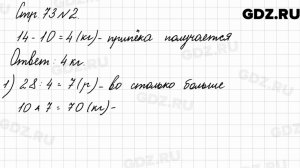 GDZ.RU
Стр 73 №2
14 - 10 = 4 (кг) - припёка получается
Ответ: 4 кг.
1) 28 : 4 = 7 (р) - во столько больше
10 * 7 = 70 (кг) -
GDZ.RU